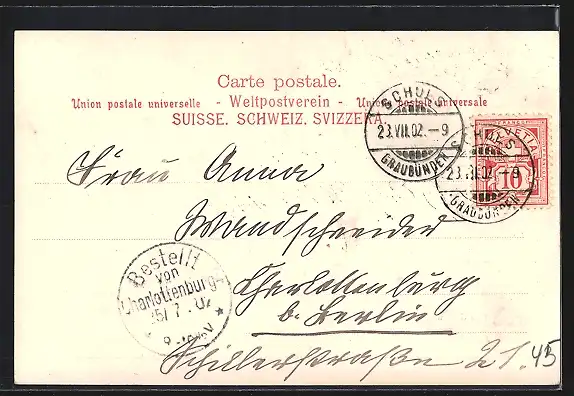 Carte postale.
Union postale universelle - Weltpostverein - Union postale universale
SUISSE. SCHWEIZ. SVIZZERA.
SCHULS
23.VII.02.-9
GRAUBÜNDEN
SCHULS
23.VII.02.-9
GRAUBÜNDEN
HELVETIA
10
Frau Anna
Wandschneider
Charlottenburg
b. Berlin
Schillerstraße 21. 45
Bestellt
von
Charlottenburg
25/7.02